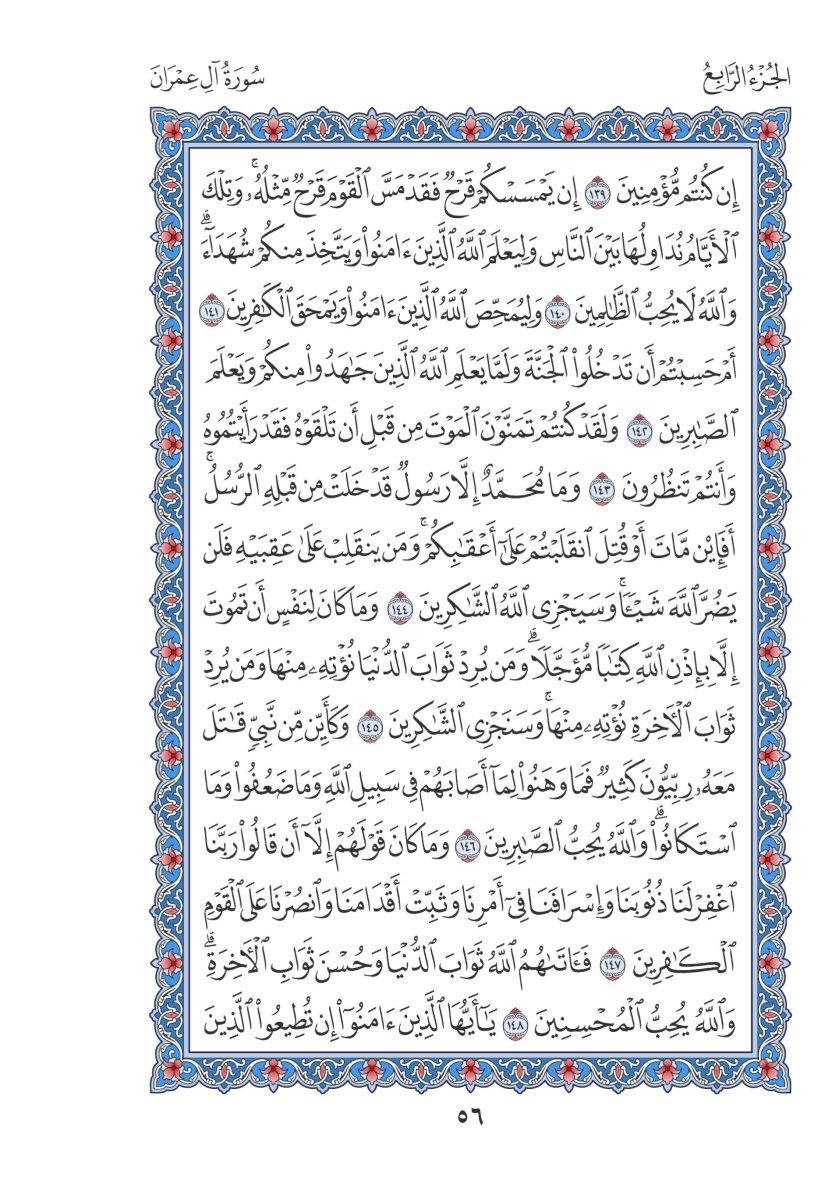 الجُزْءُ الرَّابِعُ
سُورَةُ آلِ عِمْرَانَ
إِن كُنتُم مُّؤْمِنِينَ ١٣٩ إِن يَمْسَسْكُمْ قَرْحٌ فَقَدْ مَسَّ ٱلْقَوْمَ قَرْحٌ مِّثْلُهُۥۚ وَتِلْكَ
ٱلْأَيَّامُ نُدَاوِلُهَا بَيْنَ ٱلنَّاسِ وَلِيَعْلَمَ ٱللَّهُ ٱلَّذِينَ ءَامَنُوا۟ وَيَتَّخِذَ مِنكُمْ شُهَدَآءَۗ
وَٱللَّهُ لَا يُحِبُّ ٱلظَّٰلِمِينَ ١٤٠ وَلِيُمَحِّصَ ٱللَّهُ ٱلَّذِينَ ءَامَنُوا۟ وَيَمْحَقَ ٱلْكَٰفِرِينَ ١٤١
أَمْ حَسِبْتُمْ أَن تَدْخُلُوا۟ ٱلْجَنَّةَ وَلَمَّا يَعْلَمِ ٱللَّهُ ٱلَّذِينَ جَٰهَدُوا۟ مِنكُمْ وَيَعْلَمَ
ٱلصَّٰبِرِينَ ١٤٢ وَلَقَدْ كُنتُمْ تَمَنَّوْنَ ٱلْمَوْتَ مِن قَبْلِ أَن تَلْقَوْهُ فَقَدْ رَأَيْتُمُوهُ
وَأَنتُمْ تَنظُرُونَ ١٤٣ وَمَا مُحَمَّدٌ إِلَّا رَسُولٌ قَدْ خَلَتْ مِن قَبْلِهِ ٱلرُّسُلُۚ
أَفَإِي۟ن مَّاتَ أَوْ قُتِلَ ٱنقَلَبْتُمْ عَلَىٰٓ أَعْقَٰبِكُمْۚ وَمَن يَنقَلِبْ عَلَىٰ عَقِبَيْهِ فَلَن
يَضُرَّ ٱللَّهَ شَيْـًٔاۚ وَسَيَجْزِى ٱللَّهُ ٱلشَّٰكِرِينَ ١٤٤ وَمَا كَانَ لِنَفْسٍ أَن تَمُوتَ
إِلَّا بِإِذْنِ ٱللَّهِ كِتَٰبًا مُّؤَجَّلًاۗ وَمَن يُرِدْ ثَوَابَ ٱلدُّنْيَا نُؤْتِهِۦ مِنْهَا وَمَن يُرِدْ
ثَوَابَ ٱلْـَٔاخِرَةِ نُؤْتِهِۦ مِنْهَاۚ وَسَنَجْزِى ٱلشَّٰكِرِينَ ١٤٥ وَكَأَيِّن مِّن نَّبِىٍّ قَٰتَلَ
مَعَهُۥ رِبِّيُّونَ كَثِيرٌ فَمَا وَهَنُوا۟ لِمَآ أَصَابَهُمْ فِى سَبِيلِ ٱللَّهِ وَمَا ضَعُفُوا۟ وَمَا
ٱسْتَكَانُوا۟ۗ وَٱللَّهُ يُحِبُّ ٱلصَّٰبِرِينَ ١٤٦ وَمَا كَانَ قَوْلَهُمْ إِلَّآ أَن قَالُوا۟ رَبَّنَا
ٱغْفِرْ لَنَا ذُنُوبَنَا وَإِسْرَافَنَا فِىٓ أَمْرِنَا وَثَبِّتْ أَقْدَامَنَا وَٱنصُرْنَا عَلَى ٱلْقَوْمِ
ٱلْكَٰفِرِينَ ١٤٧ فَـَٔاتَىٰهُمُ ٱللَّهُ ثَوَابَ ٱلدُّنْيَا وَحُسْنَ ثَوَابِ ٱلْـَٔاخِرَةِۗ
وَٱللَّهُ يُحِبُّ ٱلْمُحْسِنِينَ ١٤٨ يَٰٓأَيُّهَا ٱلَّذِينَ ءَامَنُوٓا۟ إِن تُطِيعُوا۟ ٱلَّذِينَ
٥٦